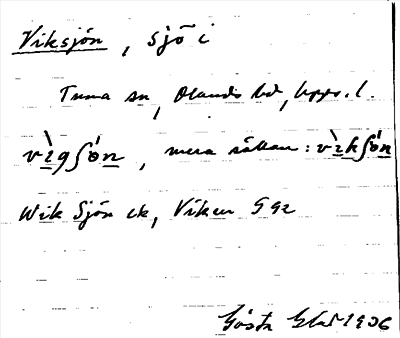 Viksjön, sjö i
Tuna sn, Olands hd, Upps. l.
vìgʃón, mera sällan: vìkʃón
Wik Sjön ek, Viken G 92
Gösta 1906